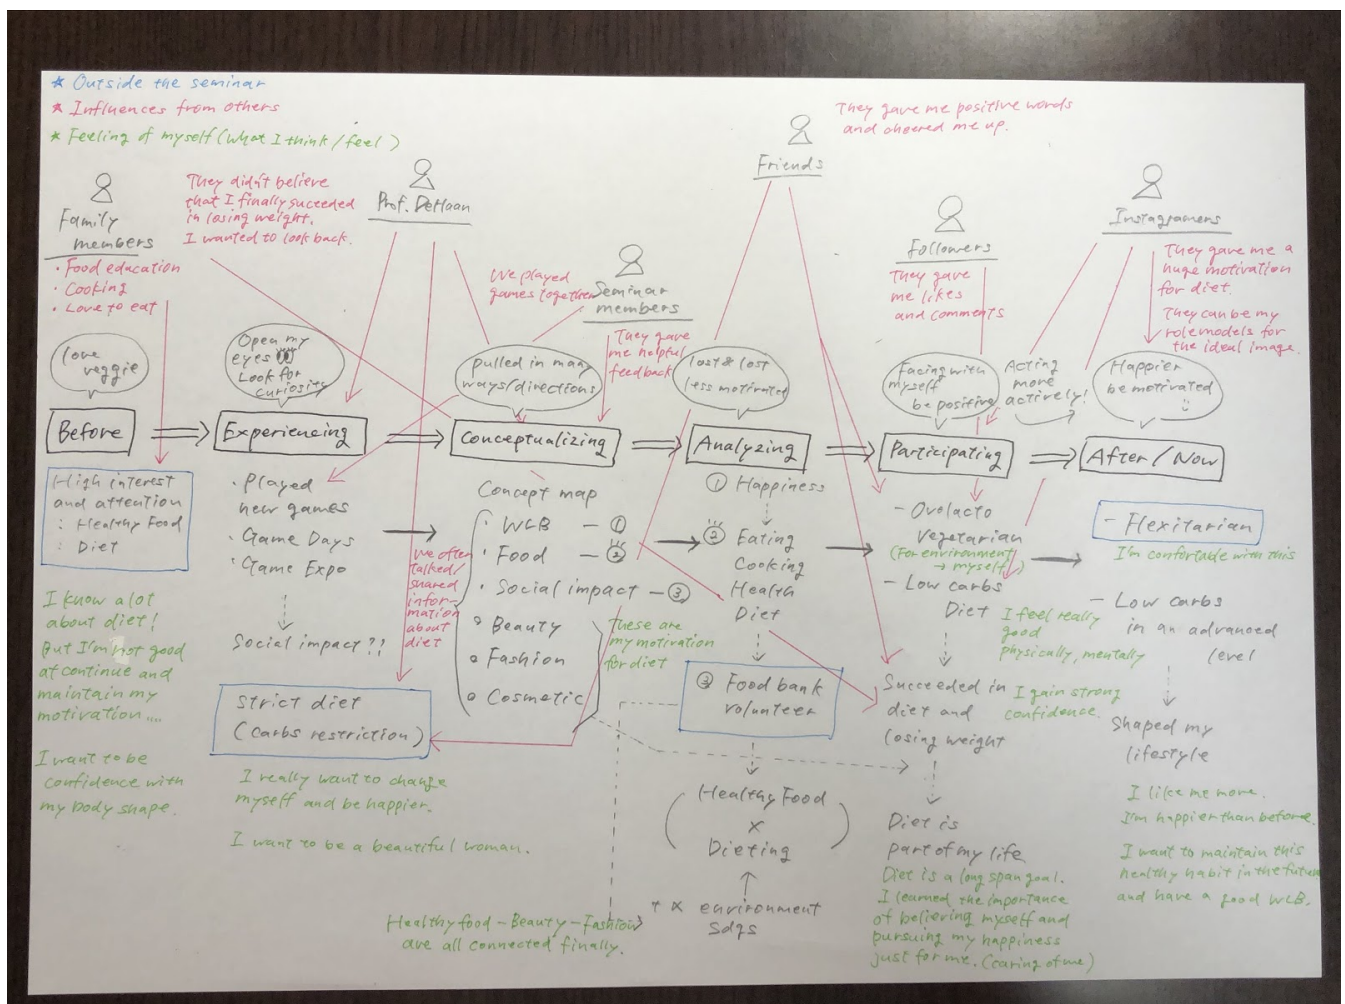 * Outside the seminar
* Influences from others
* Feeling of myself (What I think/feel)
Family
members
• Food education
• Cooking
• Love to eat
They didn't believe
that I finally succeeded
in losing weight.
I wanted to look back.
Prof. DeHaan
We played
games together
Seminar
members
They gave
me helpful
feedback
Friends
They gave me positive words
and cheered me up.
Followers
They gave
me likes
and comments
Instagramers
They gave me a
huge motivation
for diet.
They can be my
rolemodels for
the ideal image.
love
veggie
Open my
eyes
Look for
curiosity
pulled in many
ways/directions
lost & lost
less motivated
Facing with
myself
be positive
Acting
more
actively!
Happier
be motivated
Before
Experiencing
Conceptualizing
Analyzing
Participating
After/Now
High interest
and attention
: Healthy Food
: Diet
I know a lot
about diet!
But I'm not good
at continue and
maintain my
motivation....
I want to be
confidence with
my body shape.
• Played
new games
• Game Days
• Game Expo
Social impact??
Strict diet
(Carbs restriction)
I really want to change
myself and be happier.
I want to be a beautiful woman.
We often
talked/
shared
infor-
mation
about
diet
Concept map
• WLB - ①
• Food - ②
• Social impact - ③
• Beauty
• Fashion
• Cosmetic
These are
my motivation
for diet
Healthy food - Beauty - Fashion
are all connected finally.
① Happiness
② Eating
Cooking
Health
Diet
③ Food bank
volunteer
Healthy Food
×
Dieting
+ × environment
Sdgs
- Ovolacto
Vegetarian
(For environment
→ myself)
- Low carbs
Diet
I feel really
good
physically, mentally
Succeeded in
diet and
losing weight
I gain strong
confidence.
Diet is
part of my life.
Diet is a long span goal.
I learned the importance
of believing myself and
pursuing my happiness
just for me. (caring of me)
- Flexitarian
I'm confortade with this
- Low carbs
in an advanced
level
Shaped my
lifestyle
I like me more.
I'm happier than before.
I want to maintain this
healthy habit in the future
and have a good WLB.